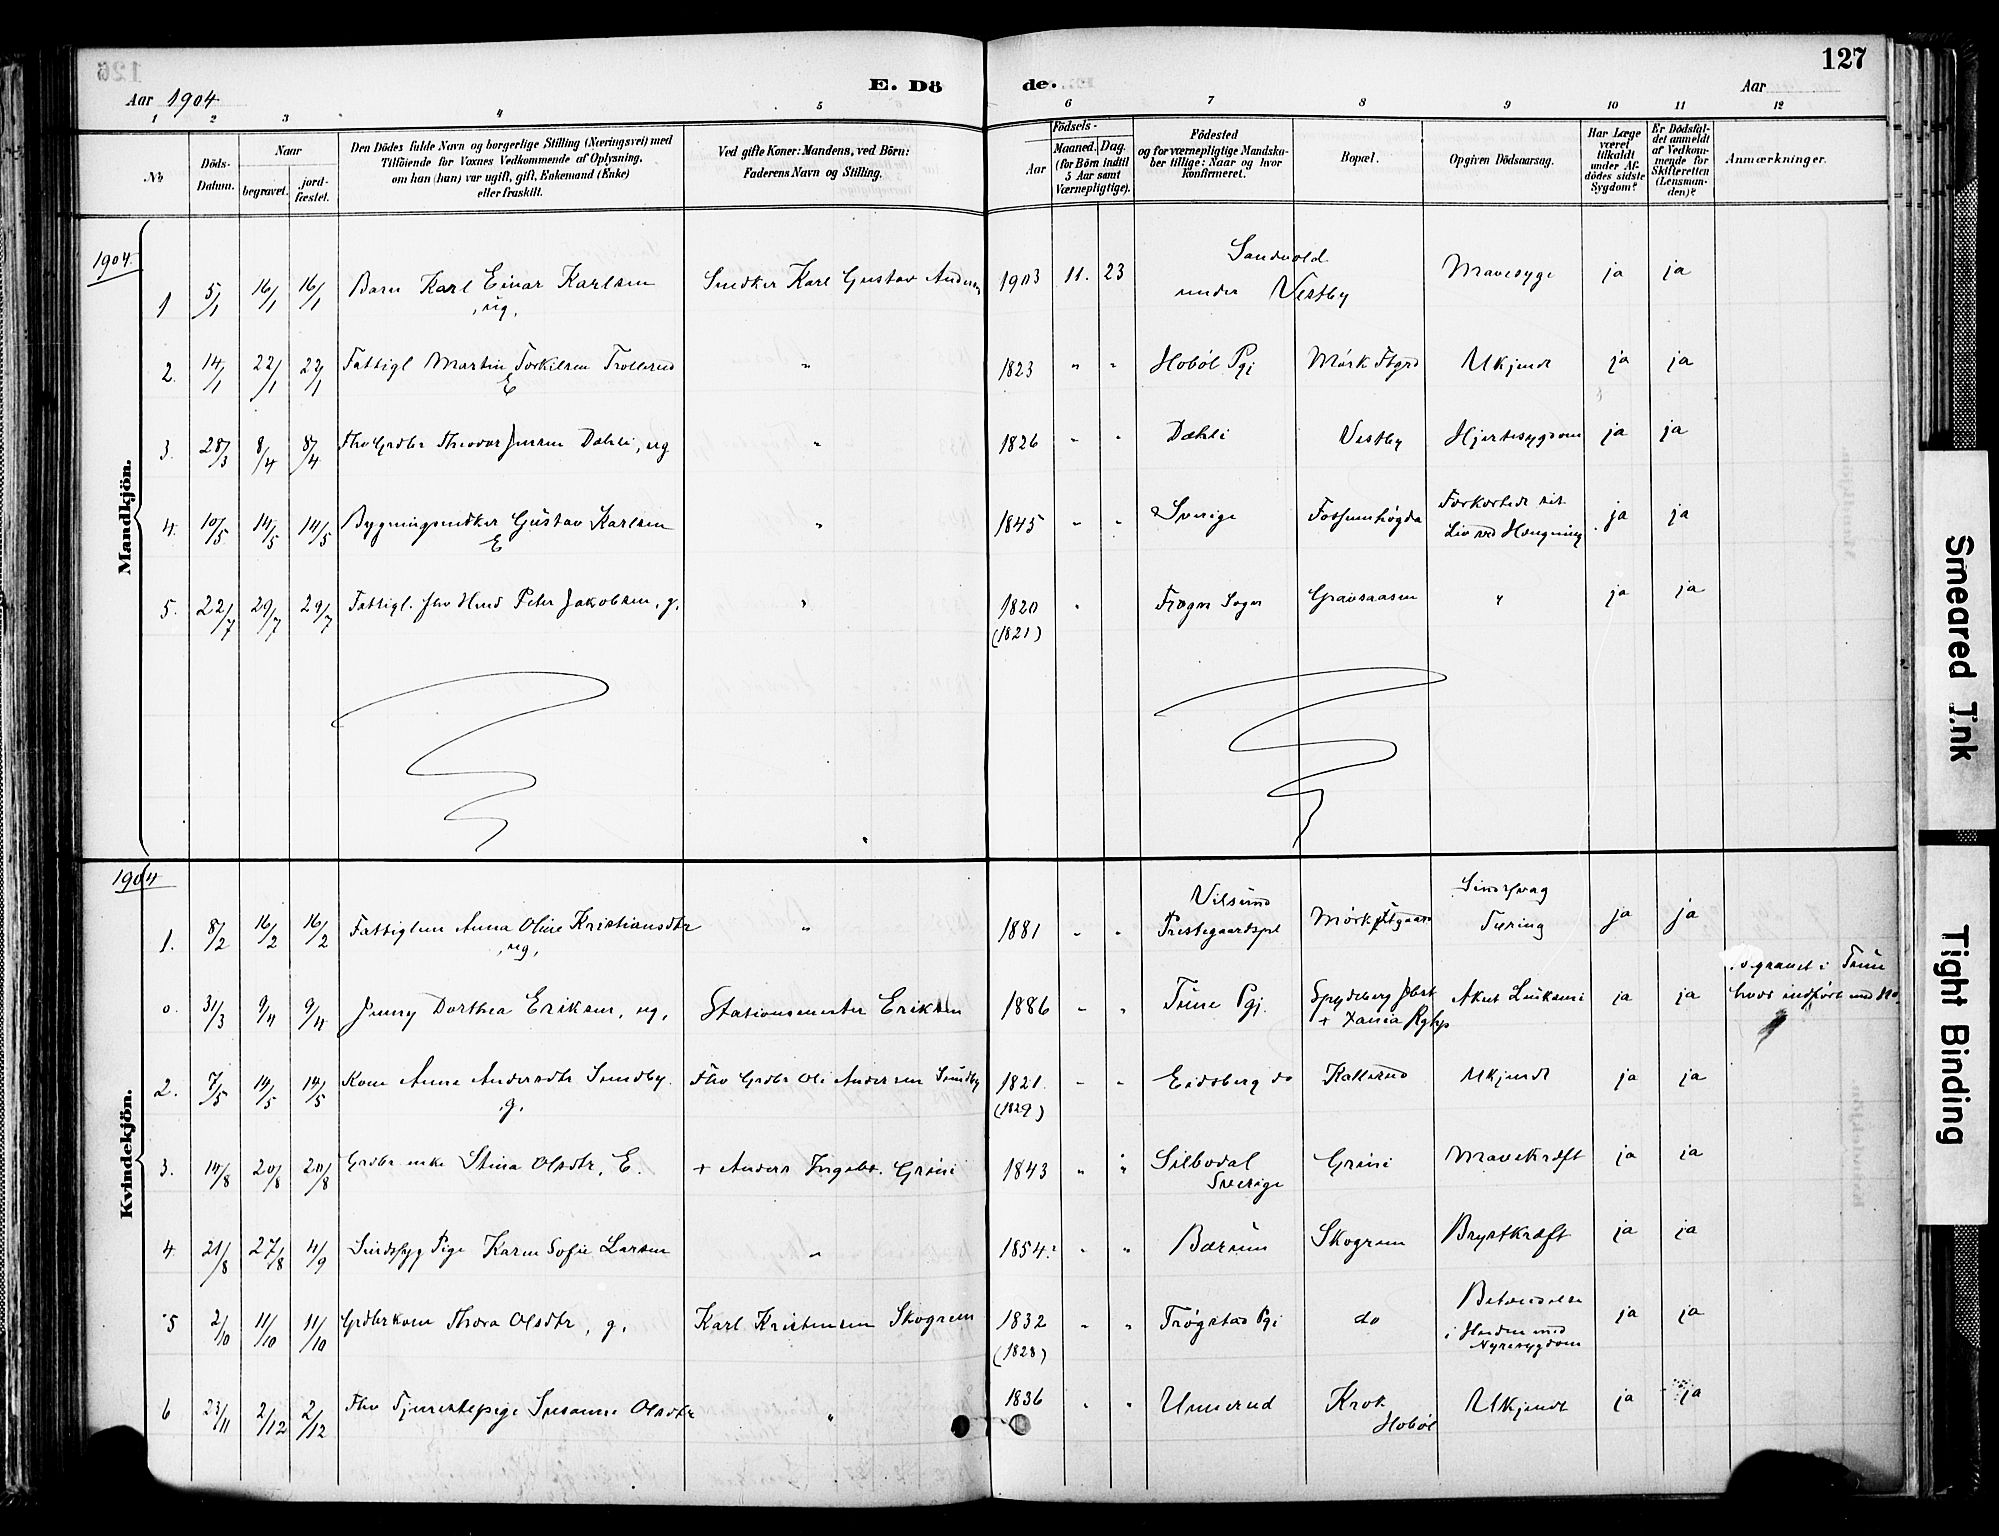 127
E. Dö de.
Aar 1904
Aar
1 2 3 4 5 6 7 8 9 10 11 12
No
Döds-Datum.
Naar begravet. jordfæstet.
Den Dödes fulde Navn og borgerlige Stilling (Næringsvei) med Tilföiende for Voxnes Vedkommende af Oplysning, om han (hun) var ugift, gift, Enkemand (Enke) eller fraskilt.
Ved gifte Koner: Mandens, ved Börn: Faderens Navn og Stilling.
Födsels-
Aar
Maaned. Dag.
(for Börn indtil 5 Aar samt Værnepligtige).
Födested og for værnepligtige Mandskaber tillige: Naar og hvor konfirmeret.
Bopæl.
Opgiven Dödsaarsag.
Har Læge været tilkaldt under Afdödes sidste Sygdom?
Er Dödsfaldet anmeldt af Vedkommende for Skifteretten (Lensmanden)?
Anmærkninger.
Mandkjön.
1904.
1 5/1 16/1 16/1 Barn Karl Einar Karlsen, ug. Snedker Karl Gustav Anders 1903 11. 23 Sandvold under Vestby Mavesyge ja ja
2. 14/1 22/1 22/1 Fattigl Martin Torkilsen Trollerud E " 1823 " " Hobøl Pgj Mørk Ukjendt ja ja
3. 28/3 8/4 8/4 Fhv Grdbr Theodor Jensen Dæhli, ug " 1826 " " Dæhli Vestby Hjertesygdom ja ja
4. 10/5 14/5 14/5 Bygningssnedker Gustav Karlsen E " 1845 " " Sverige Fossumhøgda Forkortede sit Liv ved Hængning ja ja
5. 22/7 29/7 29/7 Fattigl. fhv Hmd Peter Jakobsen, g. " 1820 (1821) " Frogn Sogn Gravsaasen " ja ja
Kvindekjön.
1904
1. 8/2 16/2 16/2 Fattiglem Anna Oline Kristiansdtr, ug. " 1881 " " Prestegaardspl Mørk Sindssvag Tæring ja ja
0. 31/3 9/4 9/4 Jenny Dorthea Eriksen, ug. Stationsmester Eriksen 1886 " " Tune Pgj. Spydeberg Jbst + Xania Rghsp Akut Leukæmi ja ja begravet i Tune hvor indført med No
2. 7/5 14/5 14/5 Kone Anne Andersdtr Sundby. g. Fhv Grdbr Ole Andersen Sundby 1821. (1829) " " Eidsberg do Kallerud Ukjendt ja ja
3. 14/8 20/8 20/8 Grdbr enke Stina Olsdtr, E. + Anders Ingebr. Grini 1843 " " Silbodal Sverige Grini Mavekræft ja ja
4 21/8 27/8 4/9 Sindssyg Pige Karen Sofie Larsen " 1854 " " Bærum Skogrem Brystkræft ja ja
5 2/10 11/10 11/10 Grdbrkone Thora Olsdtr, g. Karl Kristensen Skogrem 1832 (1828) " " Trøgstad Pgj do Betændelse i Huden med Nyresygdom ja ja
6 23/11 2/12 2/12 Fhv Tjenestepige Susanne Olsdtr " 1836 " " Unnerud Krok Hobøl Ukjendt ja ja
Smeared Ink
Tight Binding